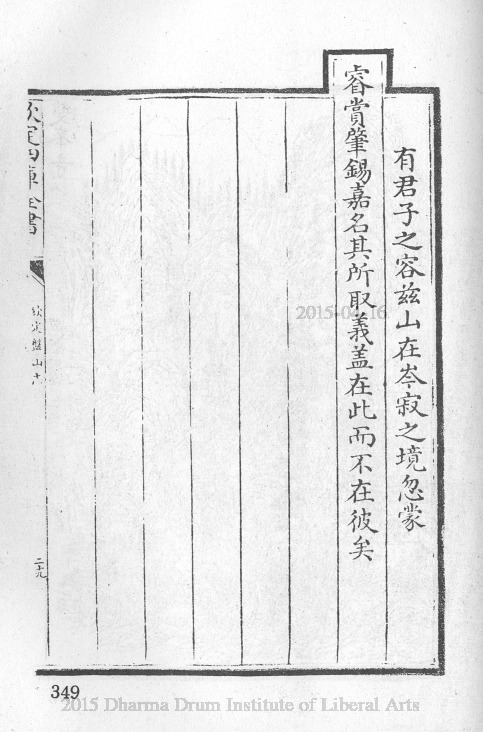 有君子之容兹山在岑寂之境忽蒙
睿賞肇錫嘉名其所取義盖在此而不在彼矣
欽定四庫全書
欽定盤山
二十九
349
2015-04-16
2015 Dharma Drum Institute of Liberal Arts